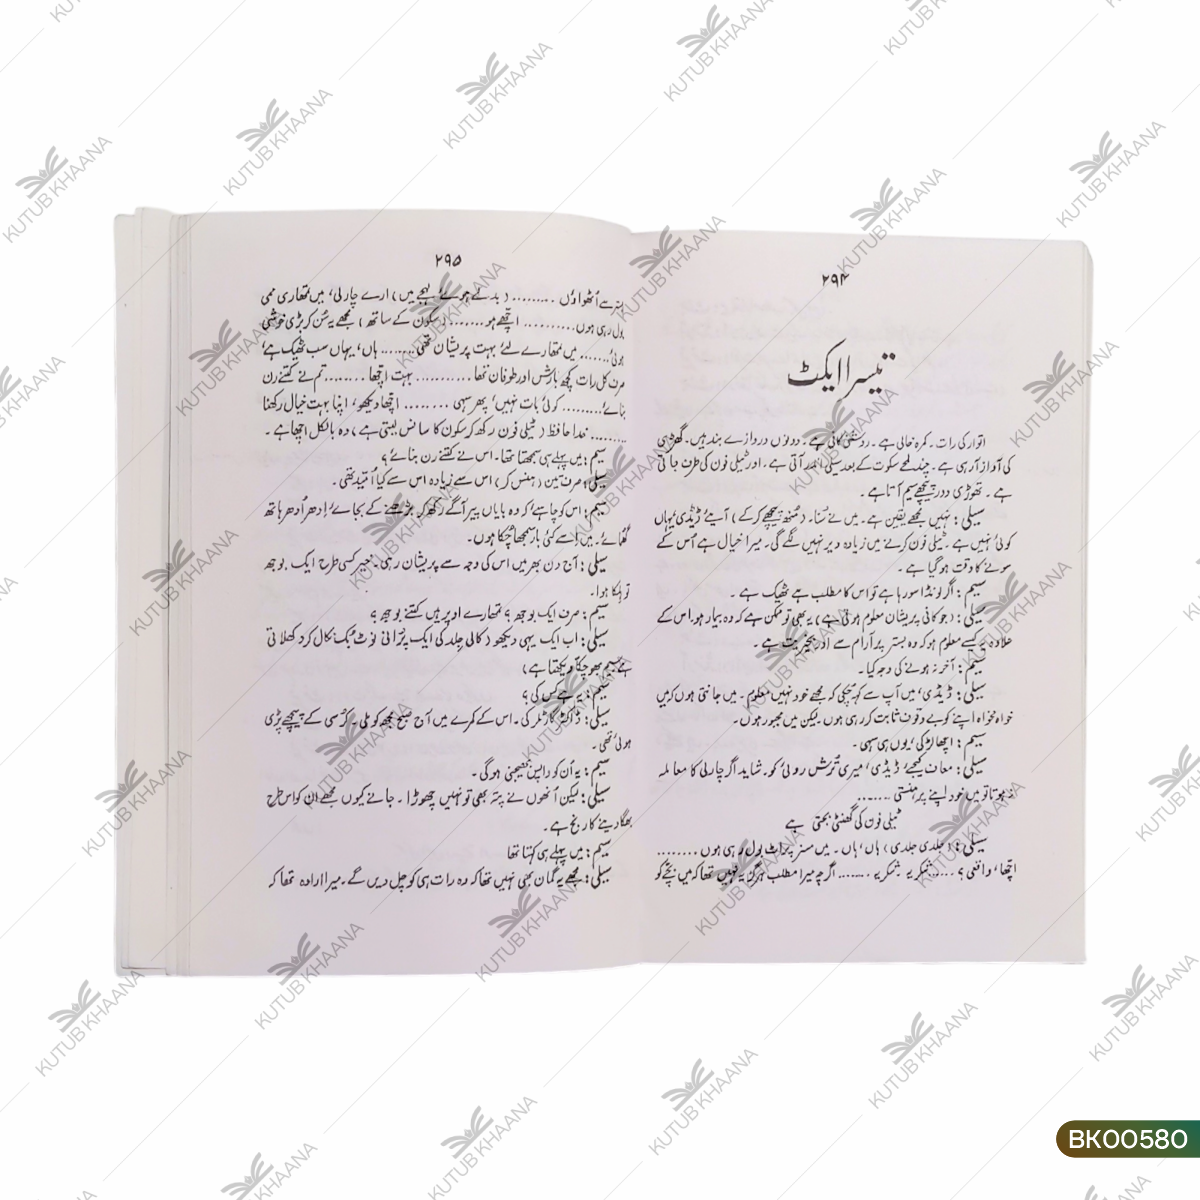 ۲۹۴
تیسرا ایکٹ
اتوار کی رات ۔ کمرہ خالی ہے ۔ روشنی کافی ہے ۔ دونوں دروازے بند ہیں۔ گھڑی
کی آواز آرہی ہے ۔ چند لمحے سکوت کے بعد سیلی اندر آتی ہے ۔ اور ٹیلی فون کی طرف جاتی
ہے ۔ تھوڑی دور پیچھے سیم آتا ہے ۔
سیلی : نہیں مجھے یقین ہے ۔ میں نے سُنا۔ (منھ پیچھے کرکے) آیئے ڈیڈی' یہاں
کوئی نہیں ہے ۔ ٹیلی فون کرنے میں زیادہ دیر نہیں لگے گی۔ میرا خیال ہے اُس کے
سونے کا وقت ہوگیا ہے ۔
سیم : اگر لونڈا سو رہا ہے تو اس کا مطلب ہے ٹھیک ہے ۔
سیلی : (جو کافی پریشان معلوم ہوتی ہے) یہ بھی تو ممکن ہے کہ وہ بیمار ہو۔ اس کے
علاوہ یہ کیسے معلوم ہو کہ وہ بستر پر آرام سے اور بخیریت ہے ۔
سیم : آخر نہ ہونے کی وجہ کیا۔
سیلی : ڈیڈی' میں آپ سے کہہ چکی کہ مجھے خود نہیں معلوم ۔ میں جانتی ہوں کہ میں
خواہ مخواہ اپنے کو بے وقوف ثابت کر رہی ہوں۔ لیکن میں مجبور ہوں۔
سیم : اچھا لڑکی' یوں ہی سہی۔
سیلی : معاف کیجیے' ڈیڈی' میری تُرش روئی کو۔ شاید اگر چارلی کا معاملہ
نہ ہوتا تو میں خود اپنے پر ہنستی .......
ٹیلی فون کی گھنٹی بجتی ہے
سیلی : (جلدی جلدی) ہاں' ہاں ۔ میں مسز پراٹ بول رہی ہوں ........
اچھا' واقعی ؟ ..... شکریہ ۔ شکریہ ....... اگرچہ میرا مطلب ہرگز یہ نہیں تھا کہ میں بچے کو
۲۹۵
بستر سے اُٹھواؤں ......... (بدلے ہوئے لہجے میں) ارے چارلی' میں تمھاری ممی
بول رہی ہوں .......... اچھے ہو ....... (سکون کے ساتھ) مجھے یہ سُن کر بڑی خوشی
ہوئی ....... میں تمھارے لیے بہت پریشان تھی ....... ہاں' یہاں سب ٹھیک ہے'
صرف کل رات کچھ بارش اور طوفان تھا .......... بہت اچھا ........ تم نے کتنے رن
بنائے ......... کوئی بات نہیں' پھر سہی ........ اچھا دیکھو' اپنا بہت خیال رکھنا
........ خدا حافظ (ٹیلی فون رکھ کر سکون کا سانس لیتی ہے) وہ بالکل اچھا ہے ۔
سیم : میں پہلے ہی سمجھتا تھا۔ اس نے کتنے رن بنائے ؟
سیلی : صرف تین (ہنس کر) اس سے زیادہ اس سے کیا اُمید تھی۔
سیم : اس کو چاہیے کہ وہ بایاں پیر آگے رکھ کر بڑھنے کے بجائے' اِدھر اُدھر ہاتھ
گھمائے۔ میں اسے کئی بار سمجھا چکا ہوں۔
سیلی : آج دن بھر میں اس کی وجہ سے پریشان رہی ۔ خیر کسی طرح ایک بوجھ
تو ہلکا ہوا۔
سیم : صرف ایک بوجھ ؟ تمھارے اوپر ہیں کتنے بوجھ ؟
سیلی : اب ایک یہی دیکھو (کالی جلد کی ایک پُرانی نوٹ بک نکال کر دکھلاتی
ہے' سیم بھوچکا دیکھتا ہے)
سیم : یہ ہے کس کی ؟
سیلی : ڈاکٹر کارٹلر کی۔ اس کے کمرے میں آج صبح مجھ کو ملی۔ کُرسی کے پیچھے پڑی
ہوئی تھی۔
سیم : یہ اُن کو واپس بھیجنی ہوگی۔
سیلی : لیکن اُنھوں نے پتہ بھی تو نہیں چھوڑا ۔ جانے کیوں مجھے اِن کو اس طرح
بھگا دینے کا رنج ہے ۔
سیم : میں پہلے ہی کہتا تھا
سیلی : مجھے یہ گمان بھی نہیں تھا کہ وہ رات ہی کو چل دیں گے۔ میرا ارادہ تھا کہ
KUTUB KHAANA
BK00580